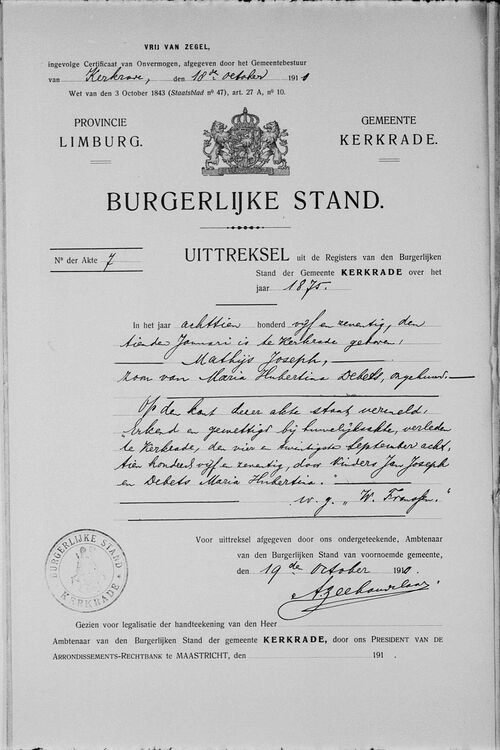 VRIJ VAN ZEGEL,
ingevolge Certificaat van Onvermogen, afgegeven door het Gemeentebestuur
van Kerkrade, den 18de October 1910
Wet van den 3 October 1843 (Staatsblad nº 47), art. 27 A, nº 10.
PROVINCIE
LIMBURG.
GEMEENTE
KERKRADE.
BURGERLIJKE STAND.
Nº der Akte 7
UITTREKSEL uit de Registers van den Burgerlijken
Stand der Gemeente KERKRADE over het
jaar 1875.
In het jaar achttien honderd vijf en zeventig, den
tiende Januari is te Kerkrade geboren:
Mathijs Joseph,
zoon van Maria Hubertina Debets, ongehuwd.
Op de kant dezer akte staat vermeld:
"Erkend en gewettigd bij huwelijksakte, verleden
te Kerkrade, den vier en twintigste September acht-
tien honderd vijf en zeventig, door Kinders Jan Joseph
en Debets Maria Hubertina."
w. g. "W. Franssen."
Voor uittreksel afgegeven door ons ondergeteekende, Ambtenaar
van den Burgerlijken Stand van voornoemde gemeente,
den 19de October 1910.
BURGERLIJKE STAND
KERKRADE
Gezien voor legalisatie der handteekening van den Heer
Ambtenaar van den Burgerlijken Stand der gemeente KERKRADE, door ons PRESIDENT VAN DE
ARRONDISSEMENTS-RECHTBANK te MAASTRICHT, den 191 .